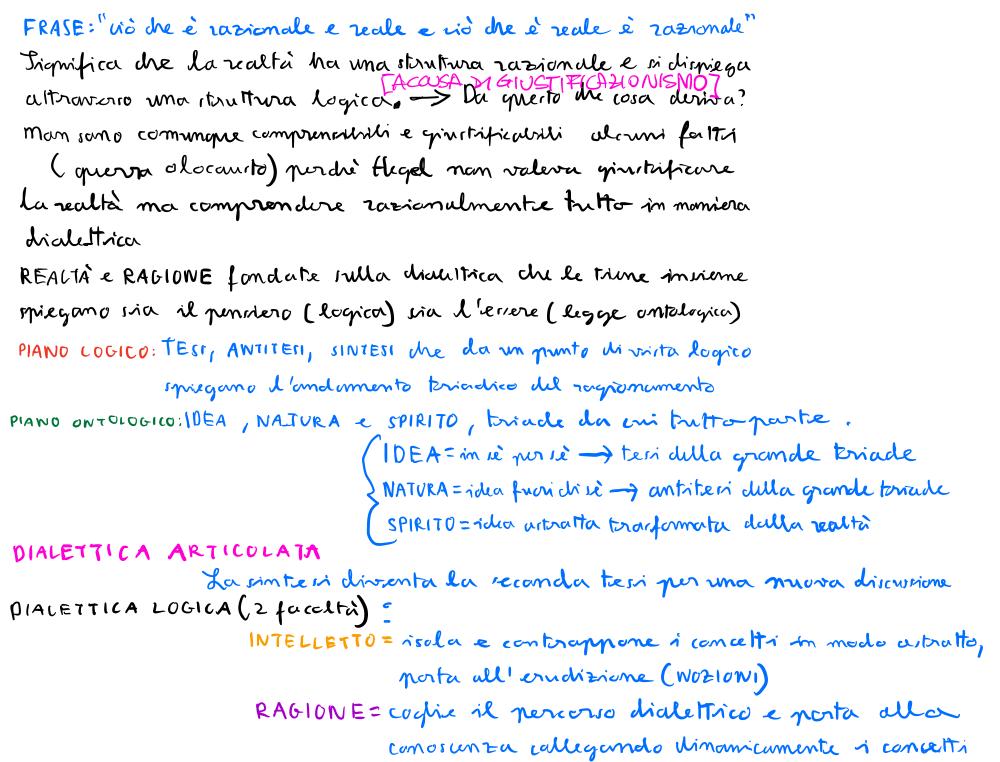 FRASE: "ciò che è razionale e reale e ciò che è reale è razionale"
Significa che la realtà ha una struttura razionale e si dispiega
[ACCUSA DI GIUSTIFICAZIONISMO]
attraverso una struttura logica. → Da questo che cosa deriva?
Non sono comunque comprensibili e giustificabili alcuni fatti
(guerra olocausto) perchè Hegel non voleva giustificare
la realtà ma comprendere razionalmente tutto in maniera
dialettica
REALTÀ e RAGIONE fondate sulla dialettica che le tiene insieme
spiegano sia il pensiero (logica) sia l'essere (legge ontologica)
PIANO LOGICO: TESI, ANTITESI, SINTESI che da un punto di vista logico
spiegano l'andamento triadico del ragionamento
PIANO ONTOLOGICO: IDEA, NATURA e SPIRITO, triade da cui tutto parte.
IDEA = in sè per sè → tesi della grande triade
NATURA = idea fuori di sè → antitesi della grande triade
SPIRITO = idea astratta trasformata dalla realtà
DIALETTICA ARTICOLATA
La sintesi diventa la seconda tesi per una nuova discussione
DIALETTICA LOGICA (2 facoltà) :
INTELLETTO = isola e contrappone i concetti in modo astratto,
porta all'erudizione (NOZIONI)
RAGIONE = coglie il percorso dialettico e porta alla
conoscenza collegando dinamicamente i concetti